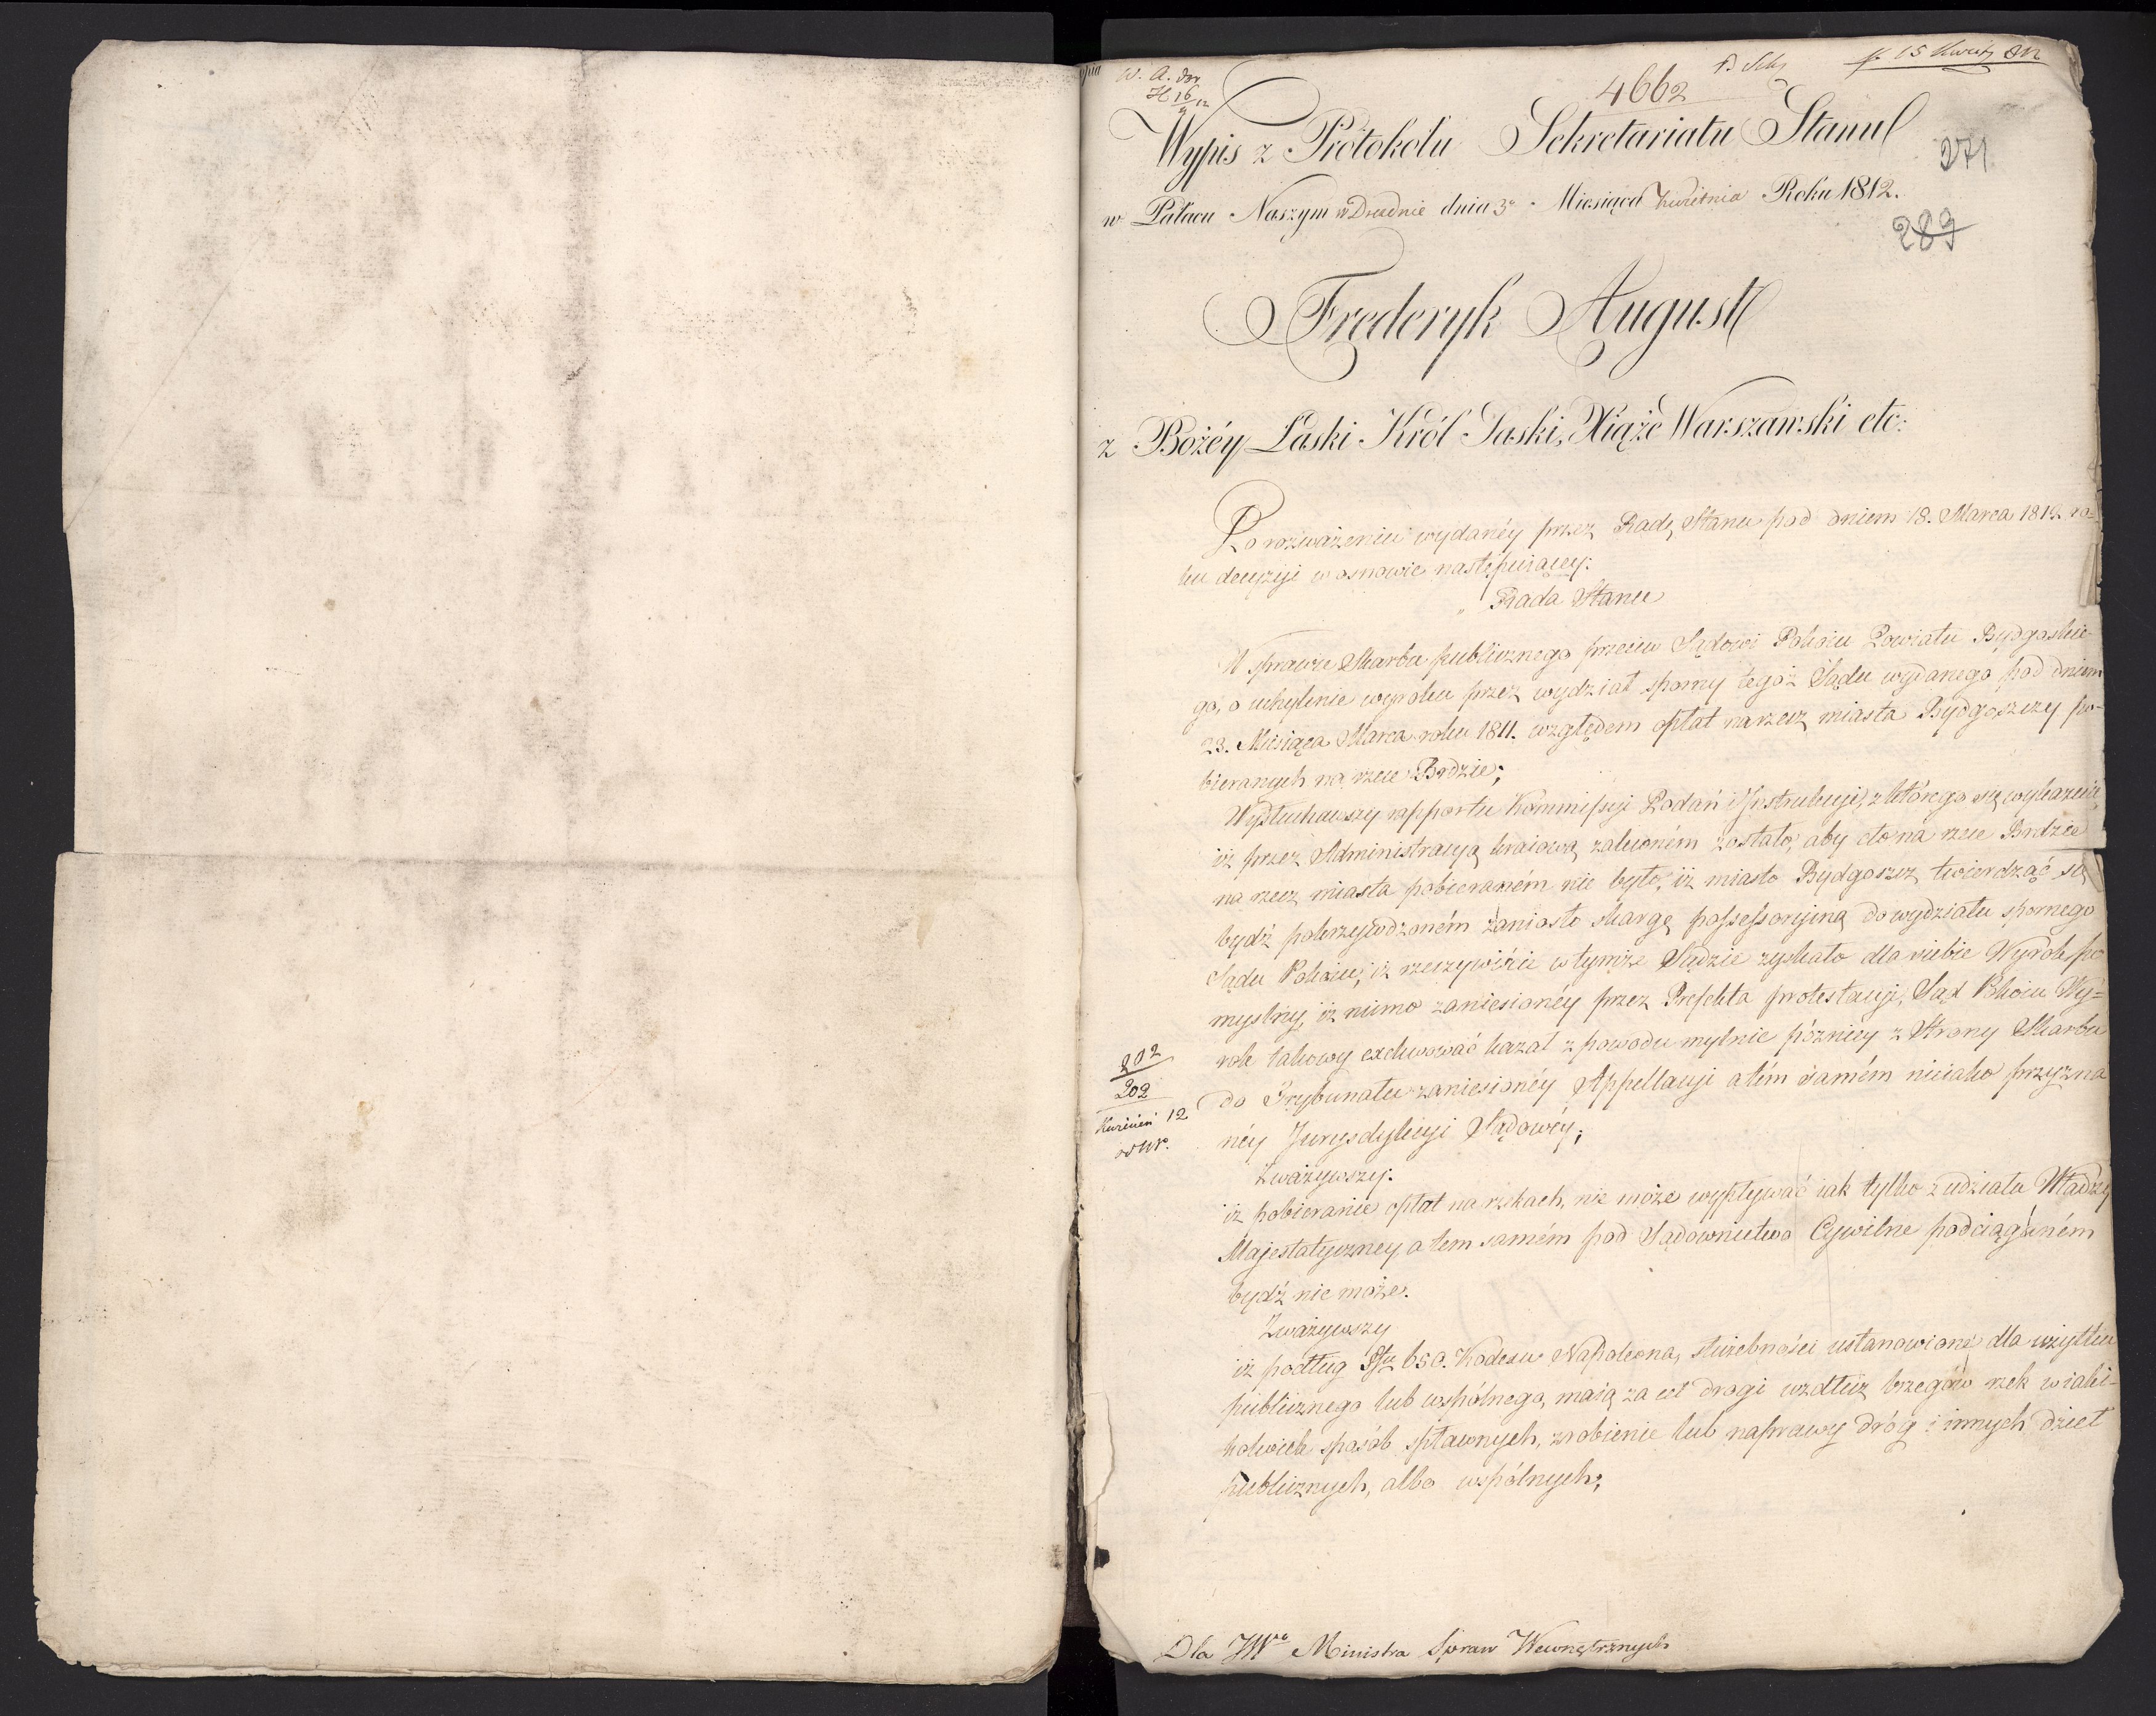 W. A.
4662
p. 15 Kwiet. 812
Wypis z Protokolu Sekretariatu Stanu
271
w Pałacu Naszym w Dreźnie dnia 3o Miesiąca Kwietnia Roku 1812.
289
Frederyk August
z Bożéy Łaski Król Saski, Xiąże Warszawski etc:
Po rozważeniu wydanéy przez Radę Stanu pod dniem 18. Marca 1812. ro-
ku decyzyi w osnowie następuiącey:
„Rada Stanu
W sprawie Skarbu publicznego przeciw Sądowi Pokoiu Powiatu Bydgoskie-
go, o uchylenie wyroku przez wydział sporny tegoż Sądu wydanego pod dniem
23. Miesiąca Marca roku 1811. względem opłat na rzecz miasta Bydgoszczy po-
bieranych na rzece Brdzie;
Wysłuchawszy rapportu Kommissyi Podań i Instrukcyi, z którego się wykazuie,
iż przez Administracyą kraiową zaleconém zostało, aby cło na rzece Brdzie
na rzecz miasta pobieraném nie było, iż miasto Bydgoszcz, twierdząc się
bydź pokrzywdzoném zaniosło skargę possessoryiną do wydziału spornego
Sądu Pokoiu; iż rzeczywiście w tymże Sądzie zyskało dla siebie Wyrok po
myślny, iż mimo zaniesionéy przez Prefekta protestacyi, Sąd Pokoiu Wy-
rok takowy exekwować kazał z powodu mylnie pózniey z Strony Skarbu
do Trybunału zaniesionéy Appellacyi a tém samém nieiako przyzna
néy Jurysdykcyi Sądowéy;
202
202
Kwiecień 12
Zważywszy:
iż pobieranie opłat na rzekach, nie może wypływać iak tylko z udziału Władzy
Majestatyczney a tem samém pod Sądownictwo Cywilne podciągniném
bydź nie może.
Zważywszy
iż podług Ffu 650. Kodexu Napoleona, służebności ustanowione dla użytku
publicznego lub wspólnego, maią za cel drogi wzdłuż brzegów rzek w iaki-
kolwiek sposób spławnych, zrobienie lub naprawy dróg i innych dzieł
publicznych, albo wspólnych;
Dla JWo Ministra Spraw Wewnętrznych